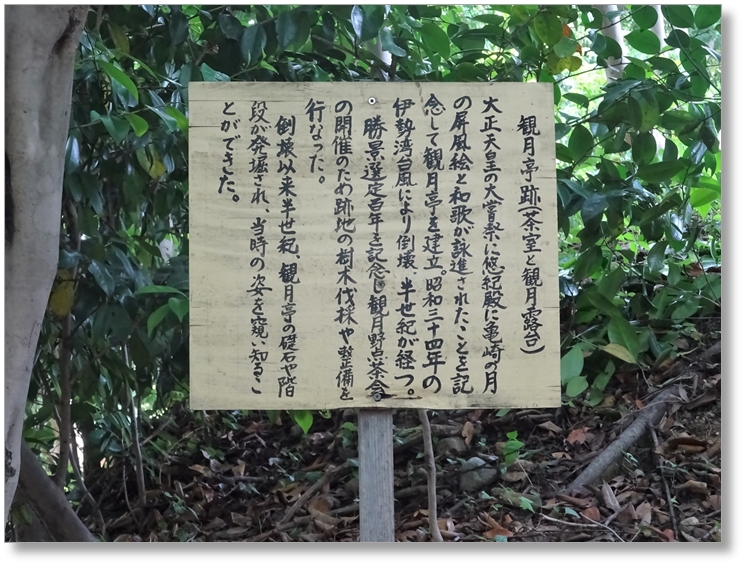 観月亭跡(茶室と観月露台)
大正天皇の大嘗祭に悠紀殿に亀崎の月
の屏風絵と和歌が詠進されたことを記
念して観月亭を建立。昭和三十四年の
伊勢湾台風により倒壊、半世紀が経つ。
勝景選定百年を記念し観月野点茶会
の開催のため跡地の樹木伐採や整備を
行なった。
倒壊以来半世紀、観月亭の礎石や階
段が発掘され、当時の姿を窺い知るこ
とができた。